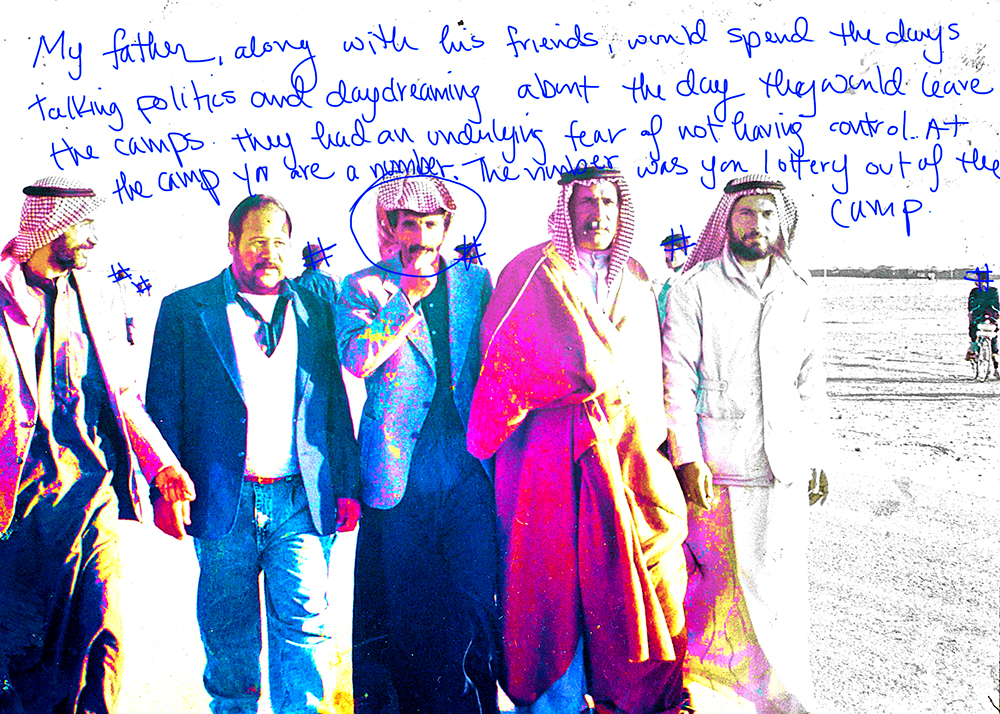 My father, along with his friends, would spend the days
talking politics and daydreaming about the day they would leave
the camps. they had an underlying fear of not having control. At
the camp you are a number. The number was you lottery out of the
camp.
# # # # # #